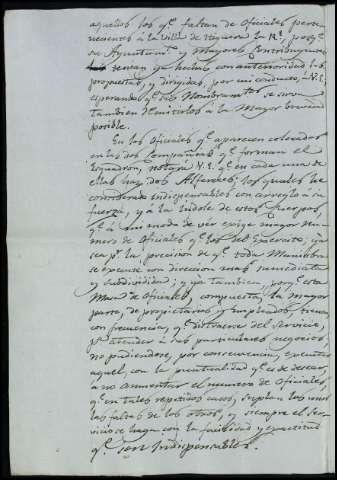 aquellos los q.e faltan de oficiales perte-
necientes à la Villa de Yguera la R.l, porq.e
su Ayuntam.to y Mayores Contribuyentes
tenian ya hechas con anterioridad las
propuestas, y dirigidas, por mi conducto, à V.E.
esperando q.e los Nombramtos se sirva
tambien remitirlos à la Mayor brevedad
posible.
En los Oficiales q.e aparecen colocados
en las dos Compañias q.e forman el
Esquadron, notará V.E. q.e en cada una de
ellas hay dos Alfereces, los quales he
considerado indispensables con arreglo à su
fuerza, y à la indole de estos Cuerpos,
q.e à mi modo de vér exige mayor nu-
mero de Oficiales q.e los del Exercito; ya
sea p.r la precision de q.e toda Maniobra
se execute con direccion mas inmediata
y subdividida; y ya tambien, porq.e esta
clase de oficiales, compuesta, la mayor
parte, de propietarios y Empleados, tienen
con frecuencia, q.e distraerse del Servicio,
p.a atender à sus particulares negocios,
no pudiendose, por consecuencia, executar
aquel, con la puntualidad q.e es de desear,
à no aumentar el numero de Oficiales,
q.e en tales repetidos casos, suplan los unos
las faltas de los otros, y siempre el Ser-
vicio se haga con la facilidad y exactitud
q.e son indispensables.